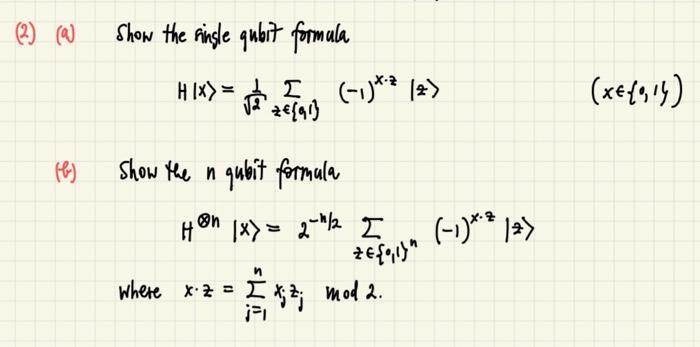 (2) (a) Show the single qubit formula
H|x> = 1/√2 Σ_{z∈{0,1}} (-1)^{x·z} |z> (x∈{0,1})
(b) Show the n qubit formula
H^{⊗n} |x> = 2^{-n/2} Σ_{z∈{0,1}^n} (-1)^{x·z} |z>
where x·z = Σ_{j=1}^{n} x_j z_j mod 2.